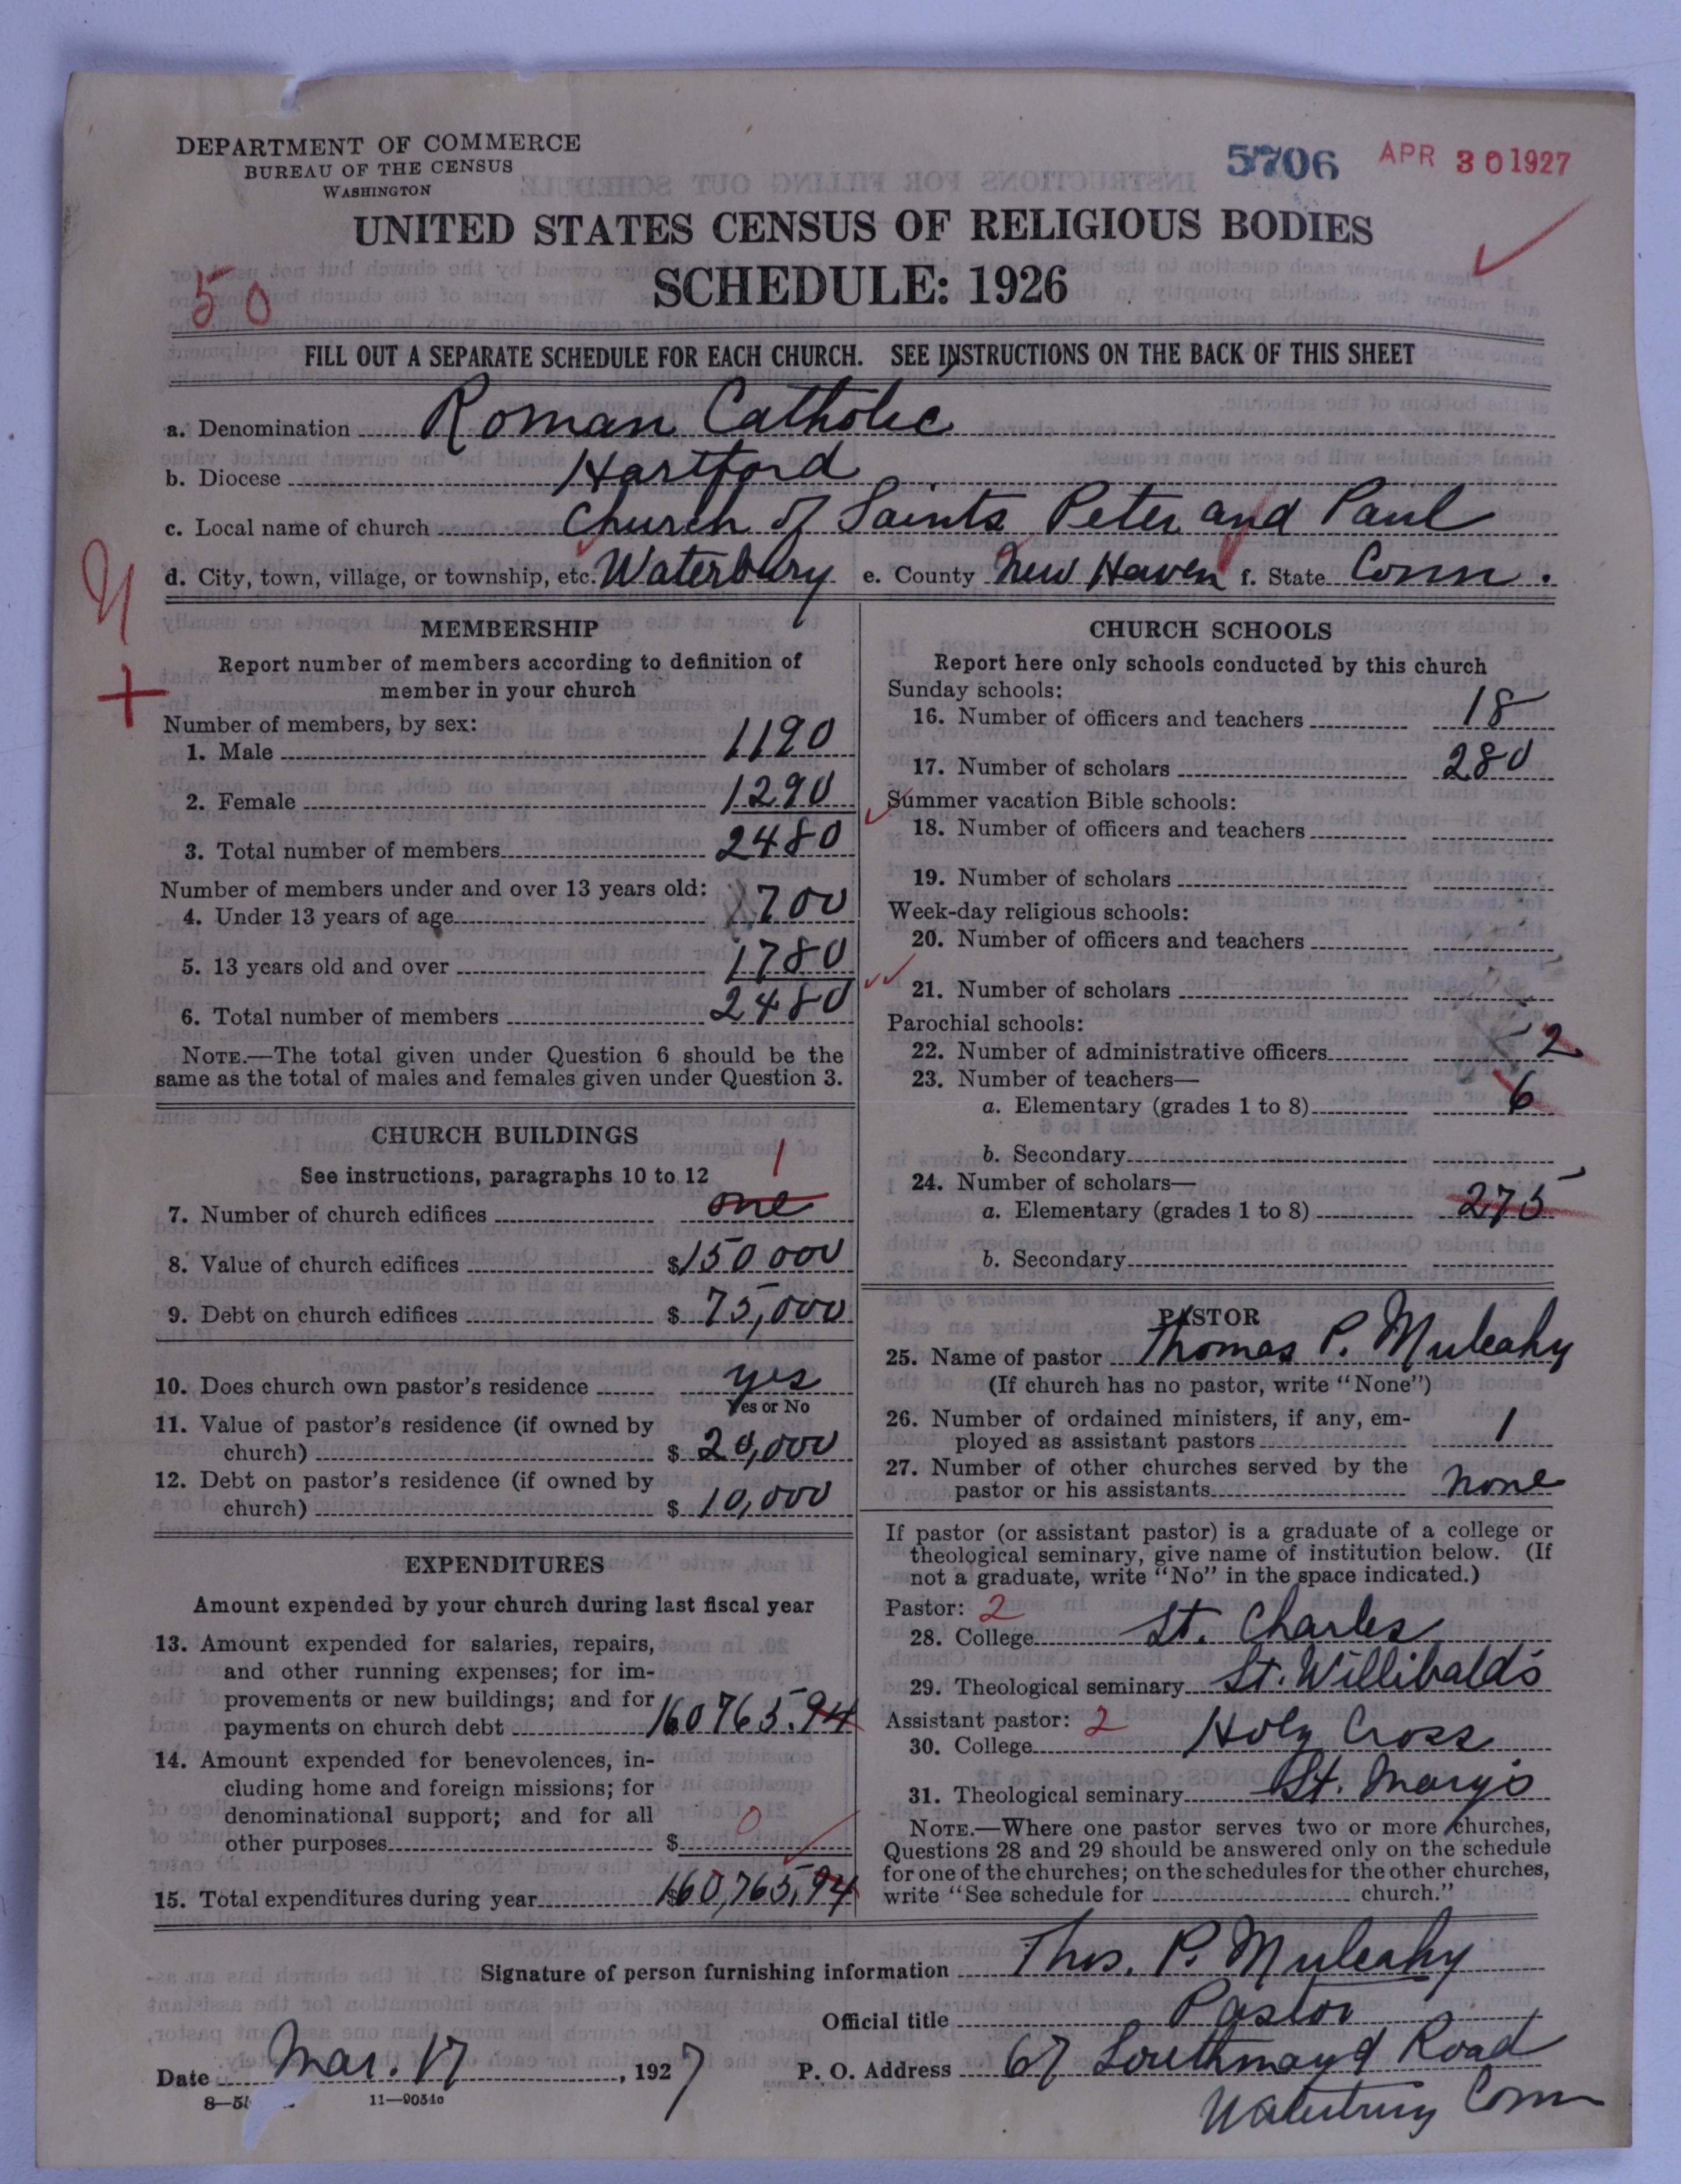 DEPARTMENT OF COMMERCE
BUREAU OF THE CENSUS
WASHINGTON
5706 APR 30 1927
UNITED STATES CENSUS OF RELIGIOUS BODIES
SCHEDULE: 1926
50
FILL OUT A SEPARATE SCHEDULE FOR EACH CHURCH. SEE INSTRUCTIONS ON THE BACK OF THIS SHEET
a. Denomination Roman Catholic
b. Diocese Hartford
c. Local name of church Church of Saints Peter and Paul
d. City, town, village, or township, etc. Waterbury e. County New Haven f. State Conn.
MEMBERSHIP
Report number of members according to definition of
member in your church
Number of members, by sex:
1. Male 1190
2. Female 1290
3. Total number of members 2480
Number of members under and over 13 years old:
4. Under 13 years of age 700
5. 13 years old and over 1780
6. Total number of members 2480
NOTE.—The total given under Question 6 should be the
same as the total of males and females given under Question 3.
CHURCH BUILDINGS
See instructions, paragraphs 10 to 12
1
7. Number of church edifices one
8. Value of church edifices $150000
9. Debt on church edifices $ 75,000
10. Does church own pastor's residence yes
Yes or No
11. Value of pastor's residence (if owned by
church) $ 20,000
12. Debt on pastor's residence (if owned by
church) $ 10,000
EXPENDITURES
Amount expended by your church during last fiscal year
13. Amount expended for salaries, repairs,
and other running expenses; for im-
provements or new buildings; and for
payments on church debt 160765.94
14. Amount expended for benevolences, in-
cluding home and foreign missions; for
denominational support; and for all
other purposes $ 0
15. Total expenditures during year $160,765.94
CHURCH SCHOOLS
Report here only schools conducted by this church
Sunday schools:
16. Number of officers and teachers 18
17. Number of scholars 280
Summer vacation Bible schools:
18. Number of officers and teachers
19. Number of scholars
Week-day religious schools:
20. Number of officers and teachers
21. Number of scholars
Parochial schools:
22. Number of administrative officers 2
23. Number of teachers—
a. Elementary (grades 1 to 8) 6
b. Secondary
24. Number of scholars—
a. Elementary (grades 1 to 8) 275
b. Secondary
PASTOR
25. Name of pastor Thomas P. Mulcahy
(If church has no pastor, write "None")
26. Number of ordained ministers, if any, em-
ployed as assistant pastors 1
27. Number of other churches served by the
pastor or his assistants none
If pastor (or assistant pastor) is a graduate of a college or
theological seminary, give name of institution below. (If
not a graduate, write "No" in the space indicated.)
Pastor: 2
28. College St. Charles
29. Theological seminary St. Willibald's
Assistant pastor: 2
30. College Holy Cross
31. Theological seminary St. Mary's
NOTE.—Where one pastor serves two or more churches,
Questions 28 and 29 should be answered only on the schedule
for one of the churches; on the schedules for the other churches,
write "See schedule for church."
Signature of person furnishing information Thos. P. Mulcahy
Official title Pastor
Date Mar. 17, 1927 P. O. Address 67 Southmayd Road
Waterbury Conn
11—9051c